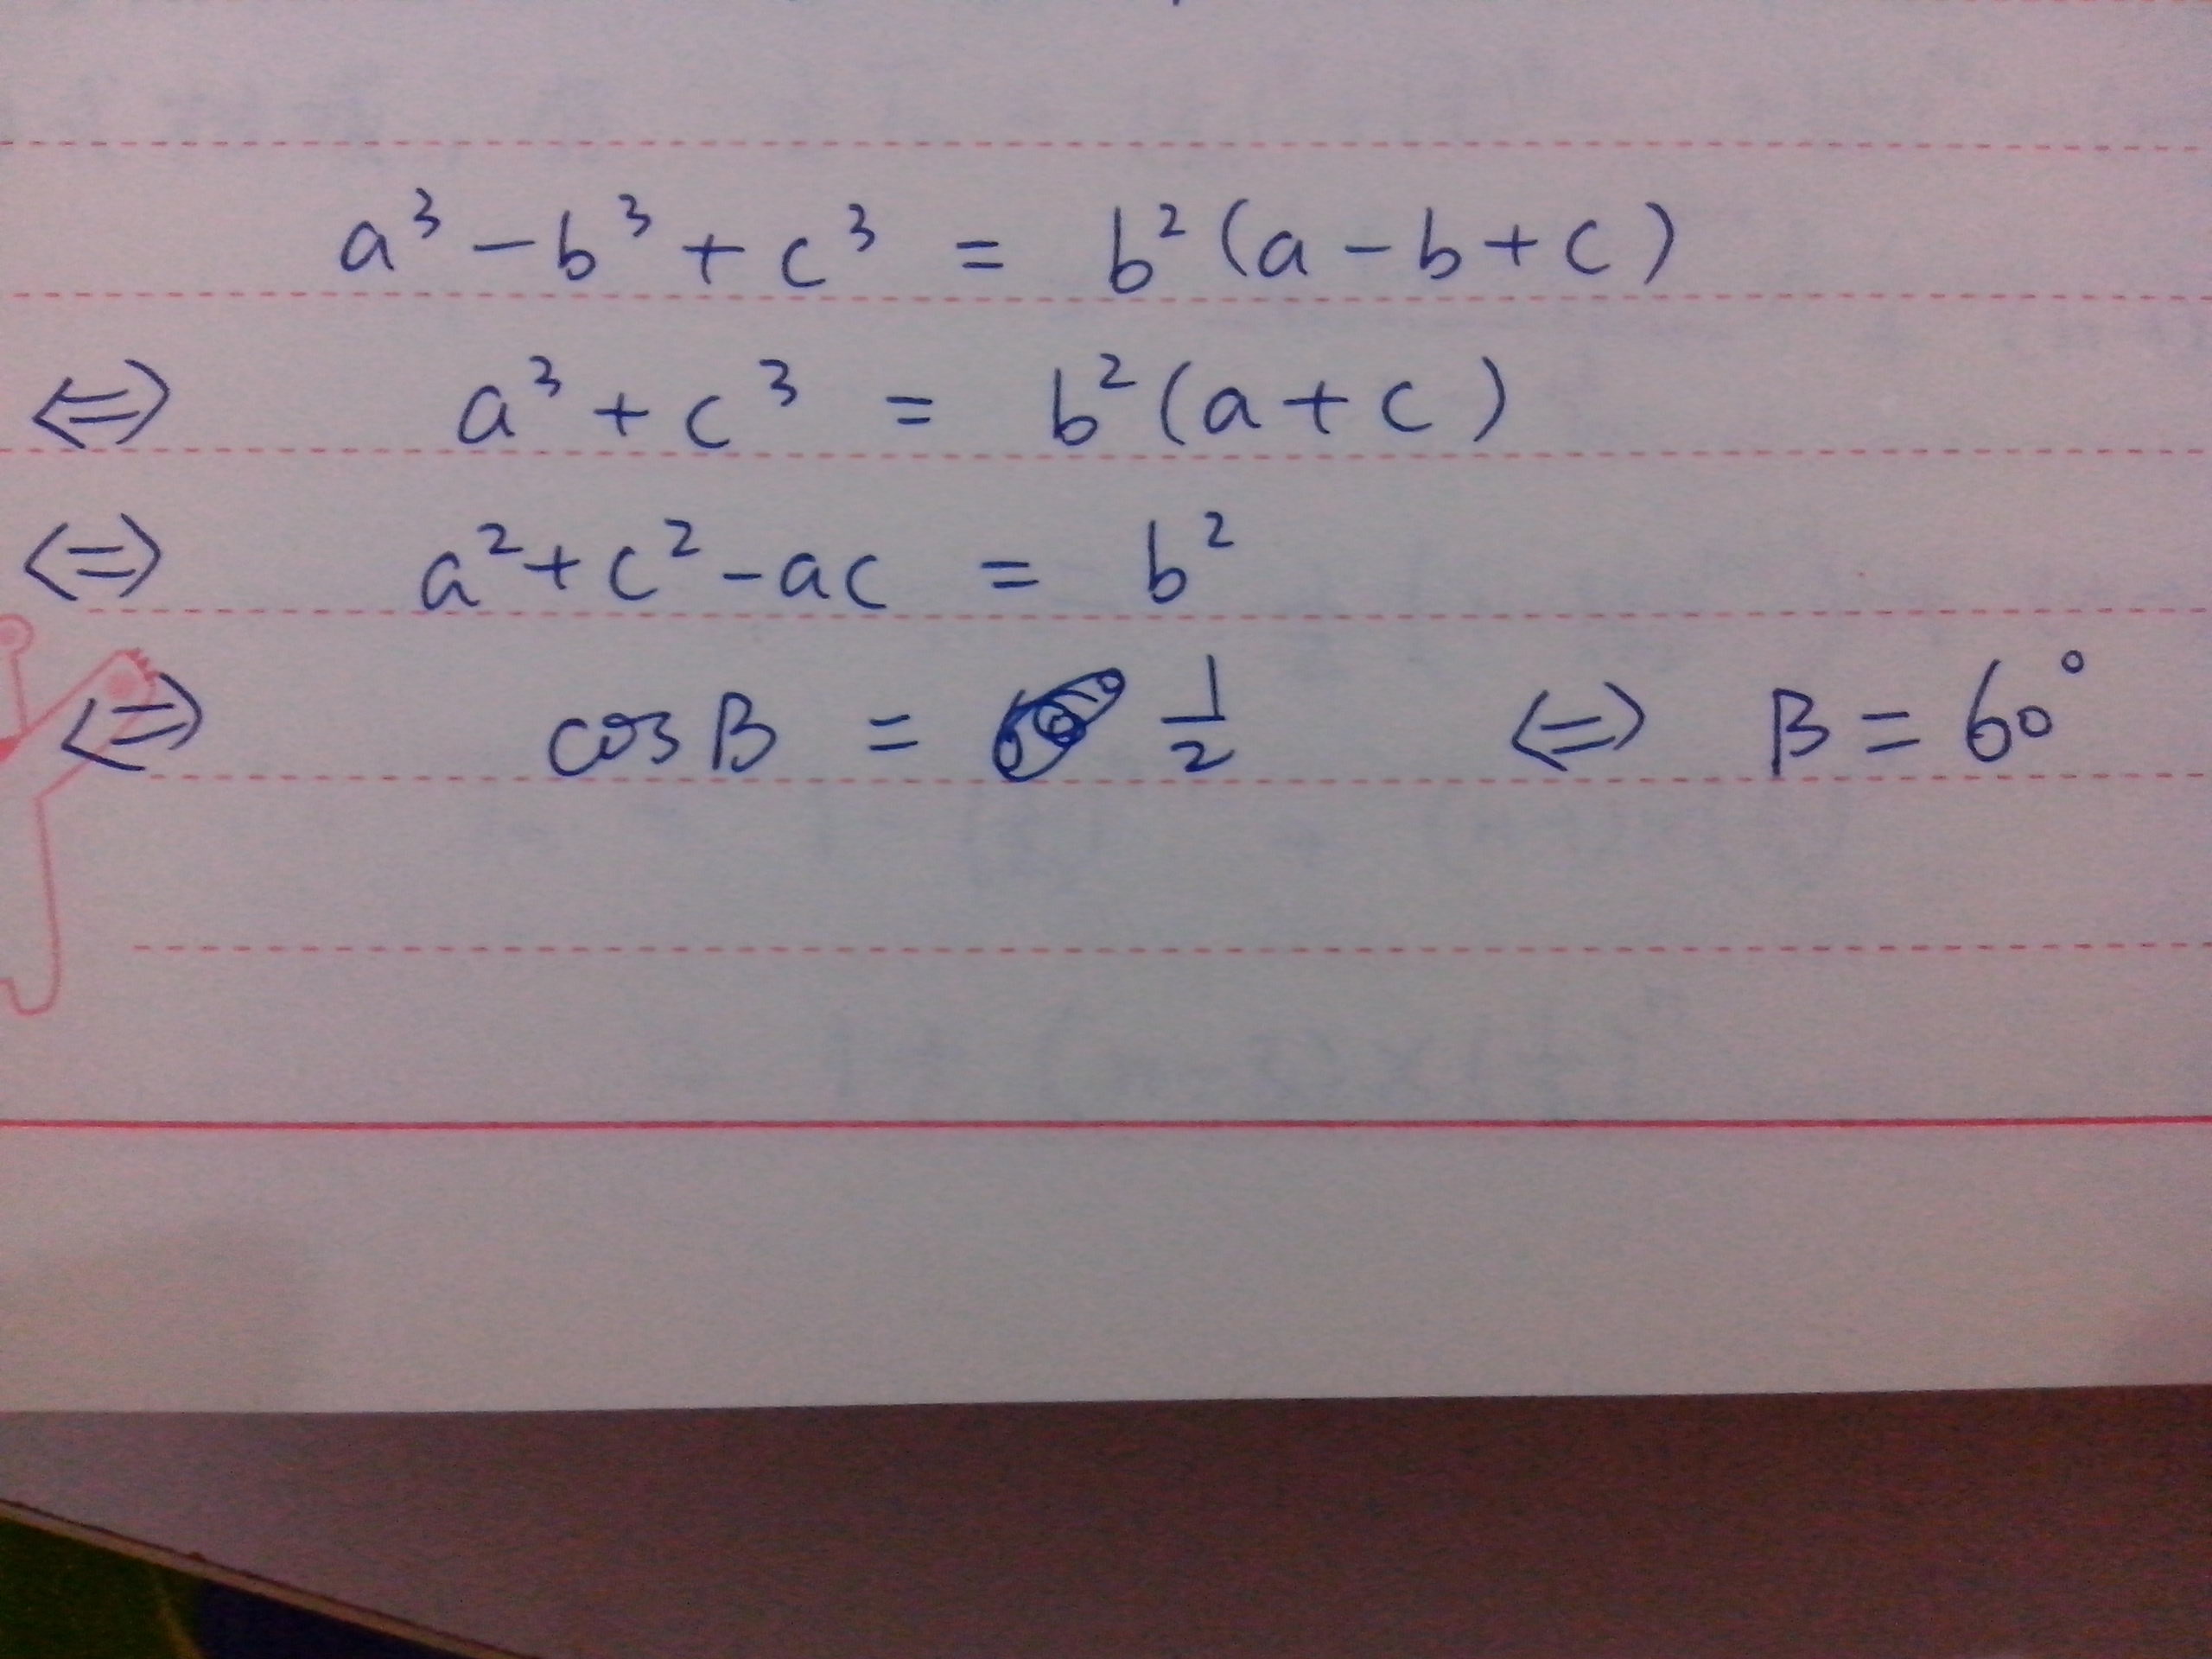 a³ - b³ + c³ = b² (a - b + c)
⇔ a³ + c³ = b² (a + c)
⇔ a² + c² - ac = b²
⇔ cos B = 1/2 ⇔ B = 60°